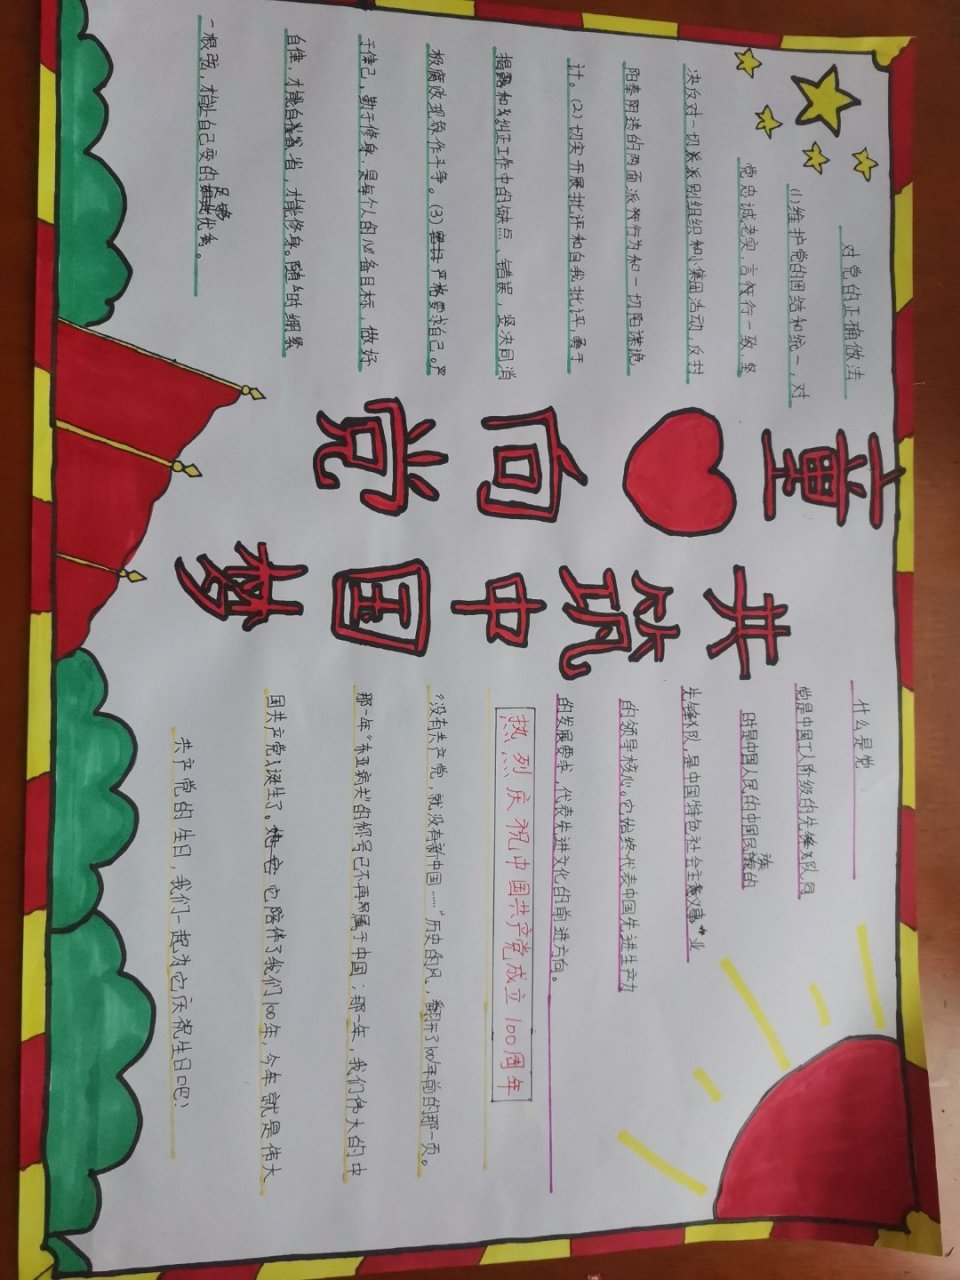 童心向党
共筑中国梦
对党的正确做法
(1)维护党的团结和统一,对
党忠诚老实,言行一致,坚
决反对一切派别组织和小集团活动,反对
阳奉阴违的两面派行为和一切阴谋诡
计。(2)切实开展批评和自我批评,勇于
揭露和纠正工作中的缺点、错误,坚决同消
极腐败现象作斗争。(3)严格要求自己。严
于律己,勤于修身,是每个人的必备目标,做好
自律,才能自省,才能修身。随时绷紧
一根弦,才能让自己变的足够优秀。
什么是党
党是中国工人阶级的先锋队,同
时是中国人民的中国民族的
先锋队,是中国特色社会主义事业
的领导核心。它始终代表中国先进生产力
的发展要求,代表先进文化的前进方向。
热烈庆祝中国共产党成立100周年
“没有共产党,就没有新中国……”历史的风,翻开了100年前的那一页。
那一年“东亚病夫”的称号已不再属于中国;那一年,我们伟大的中
国共产党诞生了。它陪伴了我们100年,今年就是伟大
共产党的生日,我们一起为它庆祝生日吧!